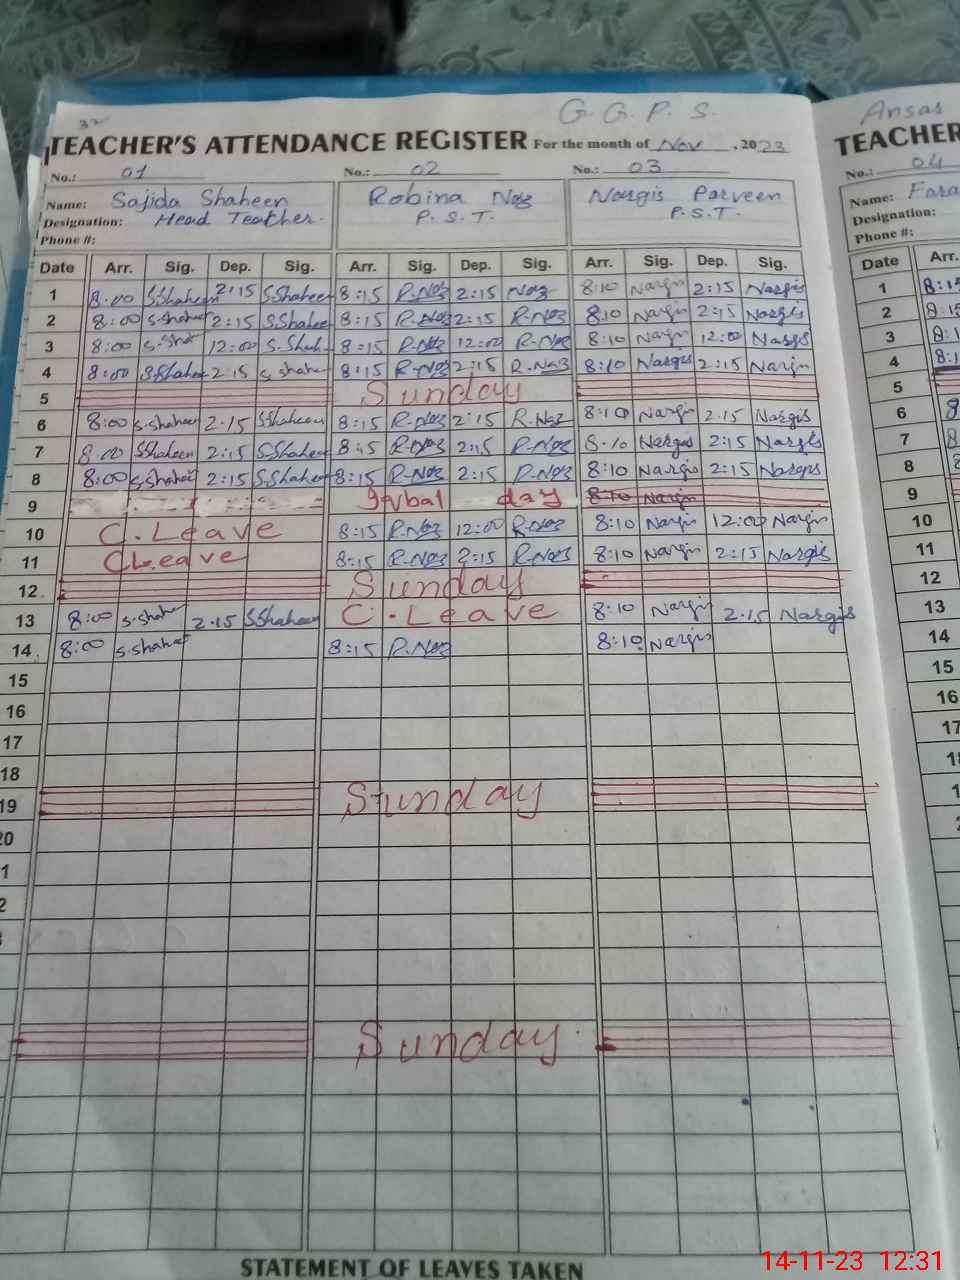 32 G.G.P.S. Ansar
TEACHER'S ATTENDANCE REGISTER For the month of Nov, 2023 TEACHER
No.: 01 No.: 02 No.: 03 No.: 04
Name: Sajida Shaheen Robina Naz Nargis Parveen Name: Fara
Designation: Head Teacher. P.S.T. P.S.T. Designation:
Phone #: Phone #:
Date Arr. Sig. Dep. Sig. Arr. Sig. Dep. Sig. Arr. Sig. Dep. Sig. Date Arr.
1 8:00 S.Shaheen 2:15 S.Shaheen 8:15 R.Naz 2:15 Naz 8:10 Nargis 2:15 Nargis 1 8:15
2 8:00 S.Shaheen 2:15 S.Shaheen 8:15 R.Naz 2:15 R.Naz 8:10 Nargis 2:15 Nargis 2 8:15
3 8:00 S.Sha 12:00 S.Shah 8:15 R.Naz 12:00 R.Naz 8:10 Nargis 12:00 Nargis 3 8:1
4 8:00 S.Shaheen 2:15 S.Shahe 8:15 R.Naz 2:15 R.Naz 8:10 Nargis 2:15 Nargis 4 8:1
5 Sunday 5
6 8:00 S.Shaheen 2.15 S.Shaheen 8:15 R.Naz 2:15 R.Naz 8:10 Nargis 2.15 Nargis 6 8
7 8:00 S.Shaheen 2:15 S.Shaheen 8:15 R.Naz 2:15 R.Naz 8:10 Nargis 2:15 Nargis 7 8
8 8:00 S.Shaheen 2:15 S.Shaheen 8:15 R.Naz 2:15 R.Naz 8:10 Nargis 2:15 Nargis 8 8
9 Iqbal day 8:10 Nargis 9
10 C.Leave 8:15 R.Naz 12:00 R.Naz 8:10 Nargis 12:00 Nargis 10
11 C.Leave 8:15 R.Naz 2:15 R.Naz 8:10 Nargis 2:15 Nargis 11
12 Sunday 12
13 8:00 S.Shahe 2.15 S.Shaheen C.Leave 8:10 Nargis 2.15 Nargis 13
14 8:00 S.Shahee 8:15 R.Naz 8:10 Nargis 14
15 15
16 16
17 17
18
19 Sunday
20
Sunday
STATEMENT OF LEAVES TAKEN
14-11-23 12:31